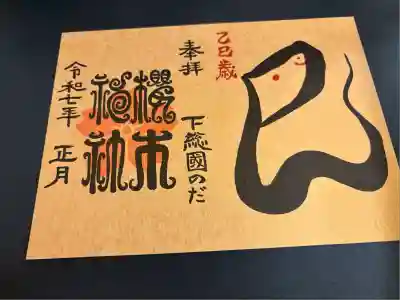 乙巳歳
奉拝 下総國のだ
櫻木
神社
令和七年 正月